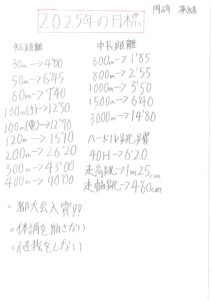 岡崎
2025年の目標
短距離
30m→4"00
50m→6"45
60m→7"40
100m(手)→12"50
100m(電)→12"70
120m→15"10
200m→26"20
300m→43"00
400m→70"00
中長距離
600m→1'85
800m→2'55
1000m→3'50
1500m→6'40
3000m→14'80
ハードル・跳躍
40H→6"20
走高跳→1m25cm
走幅跳→460cm
・都大会入賞!!
・体調を崩さない
・怪我をしない